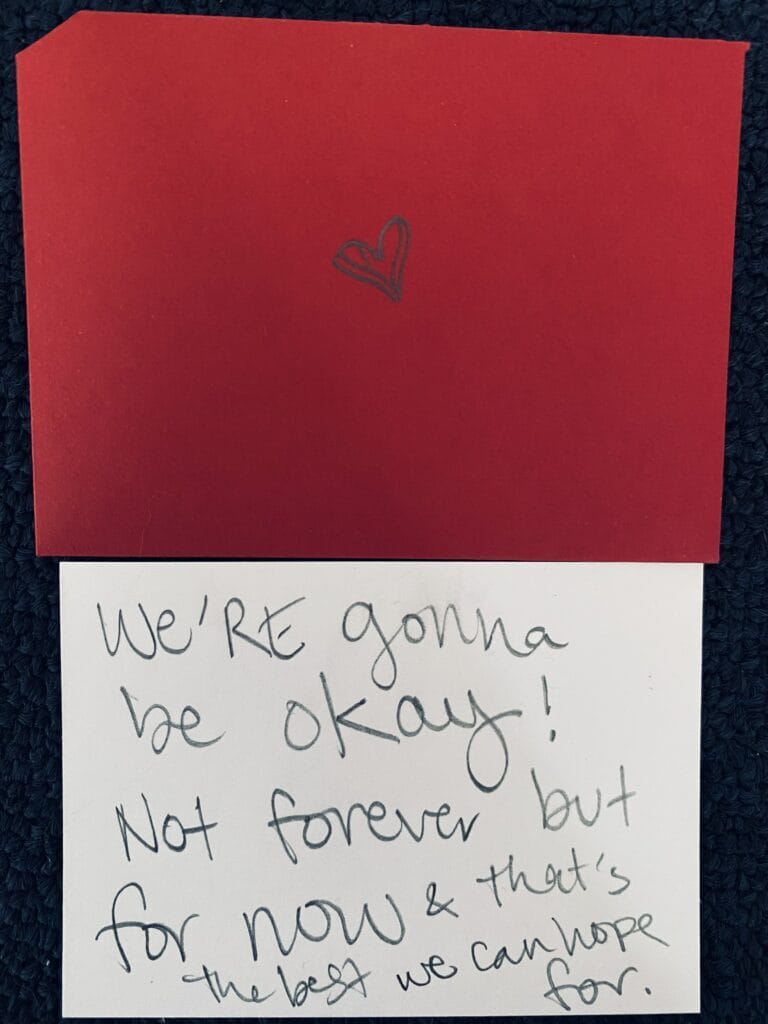 We'RE gonna
be okay!
Not forever but
for now & that's
the best we can hope
for.